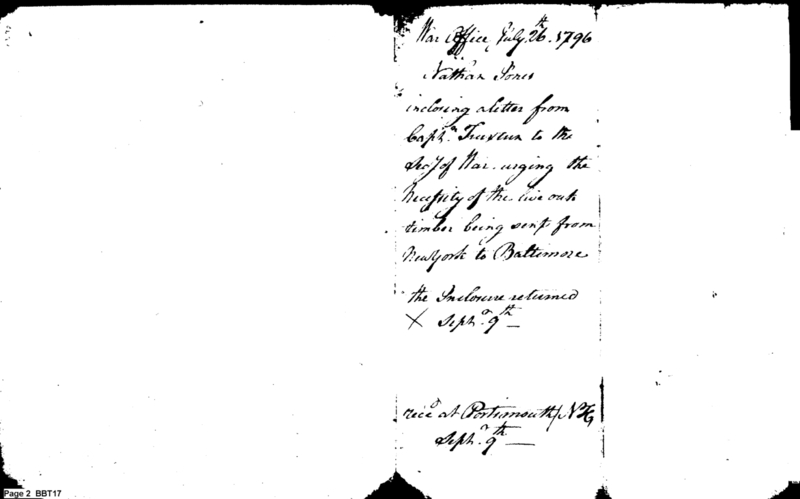 War Office, July. 26th. 1796
Nathan Jones
inclosing a letter from
Captn. Truxtun to the
Secy of War. urging the
Necessity of the live oak
timber being sent from
New York to Baltimore
the Inclosure returned
X Septr. 9th —
recd at Portsmouth, NH,
Septr. 9th —
Page 2 BBT17